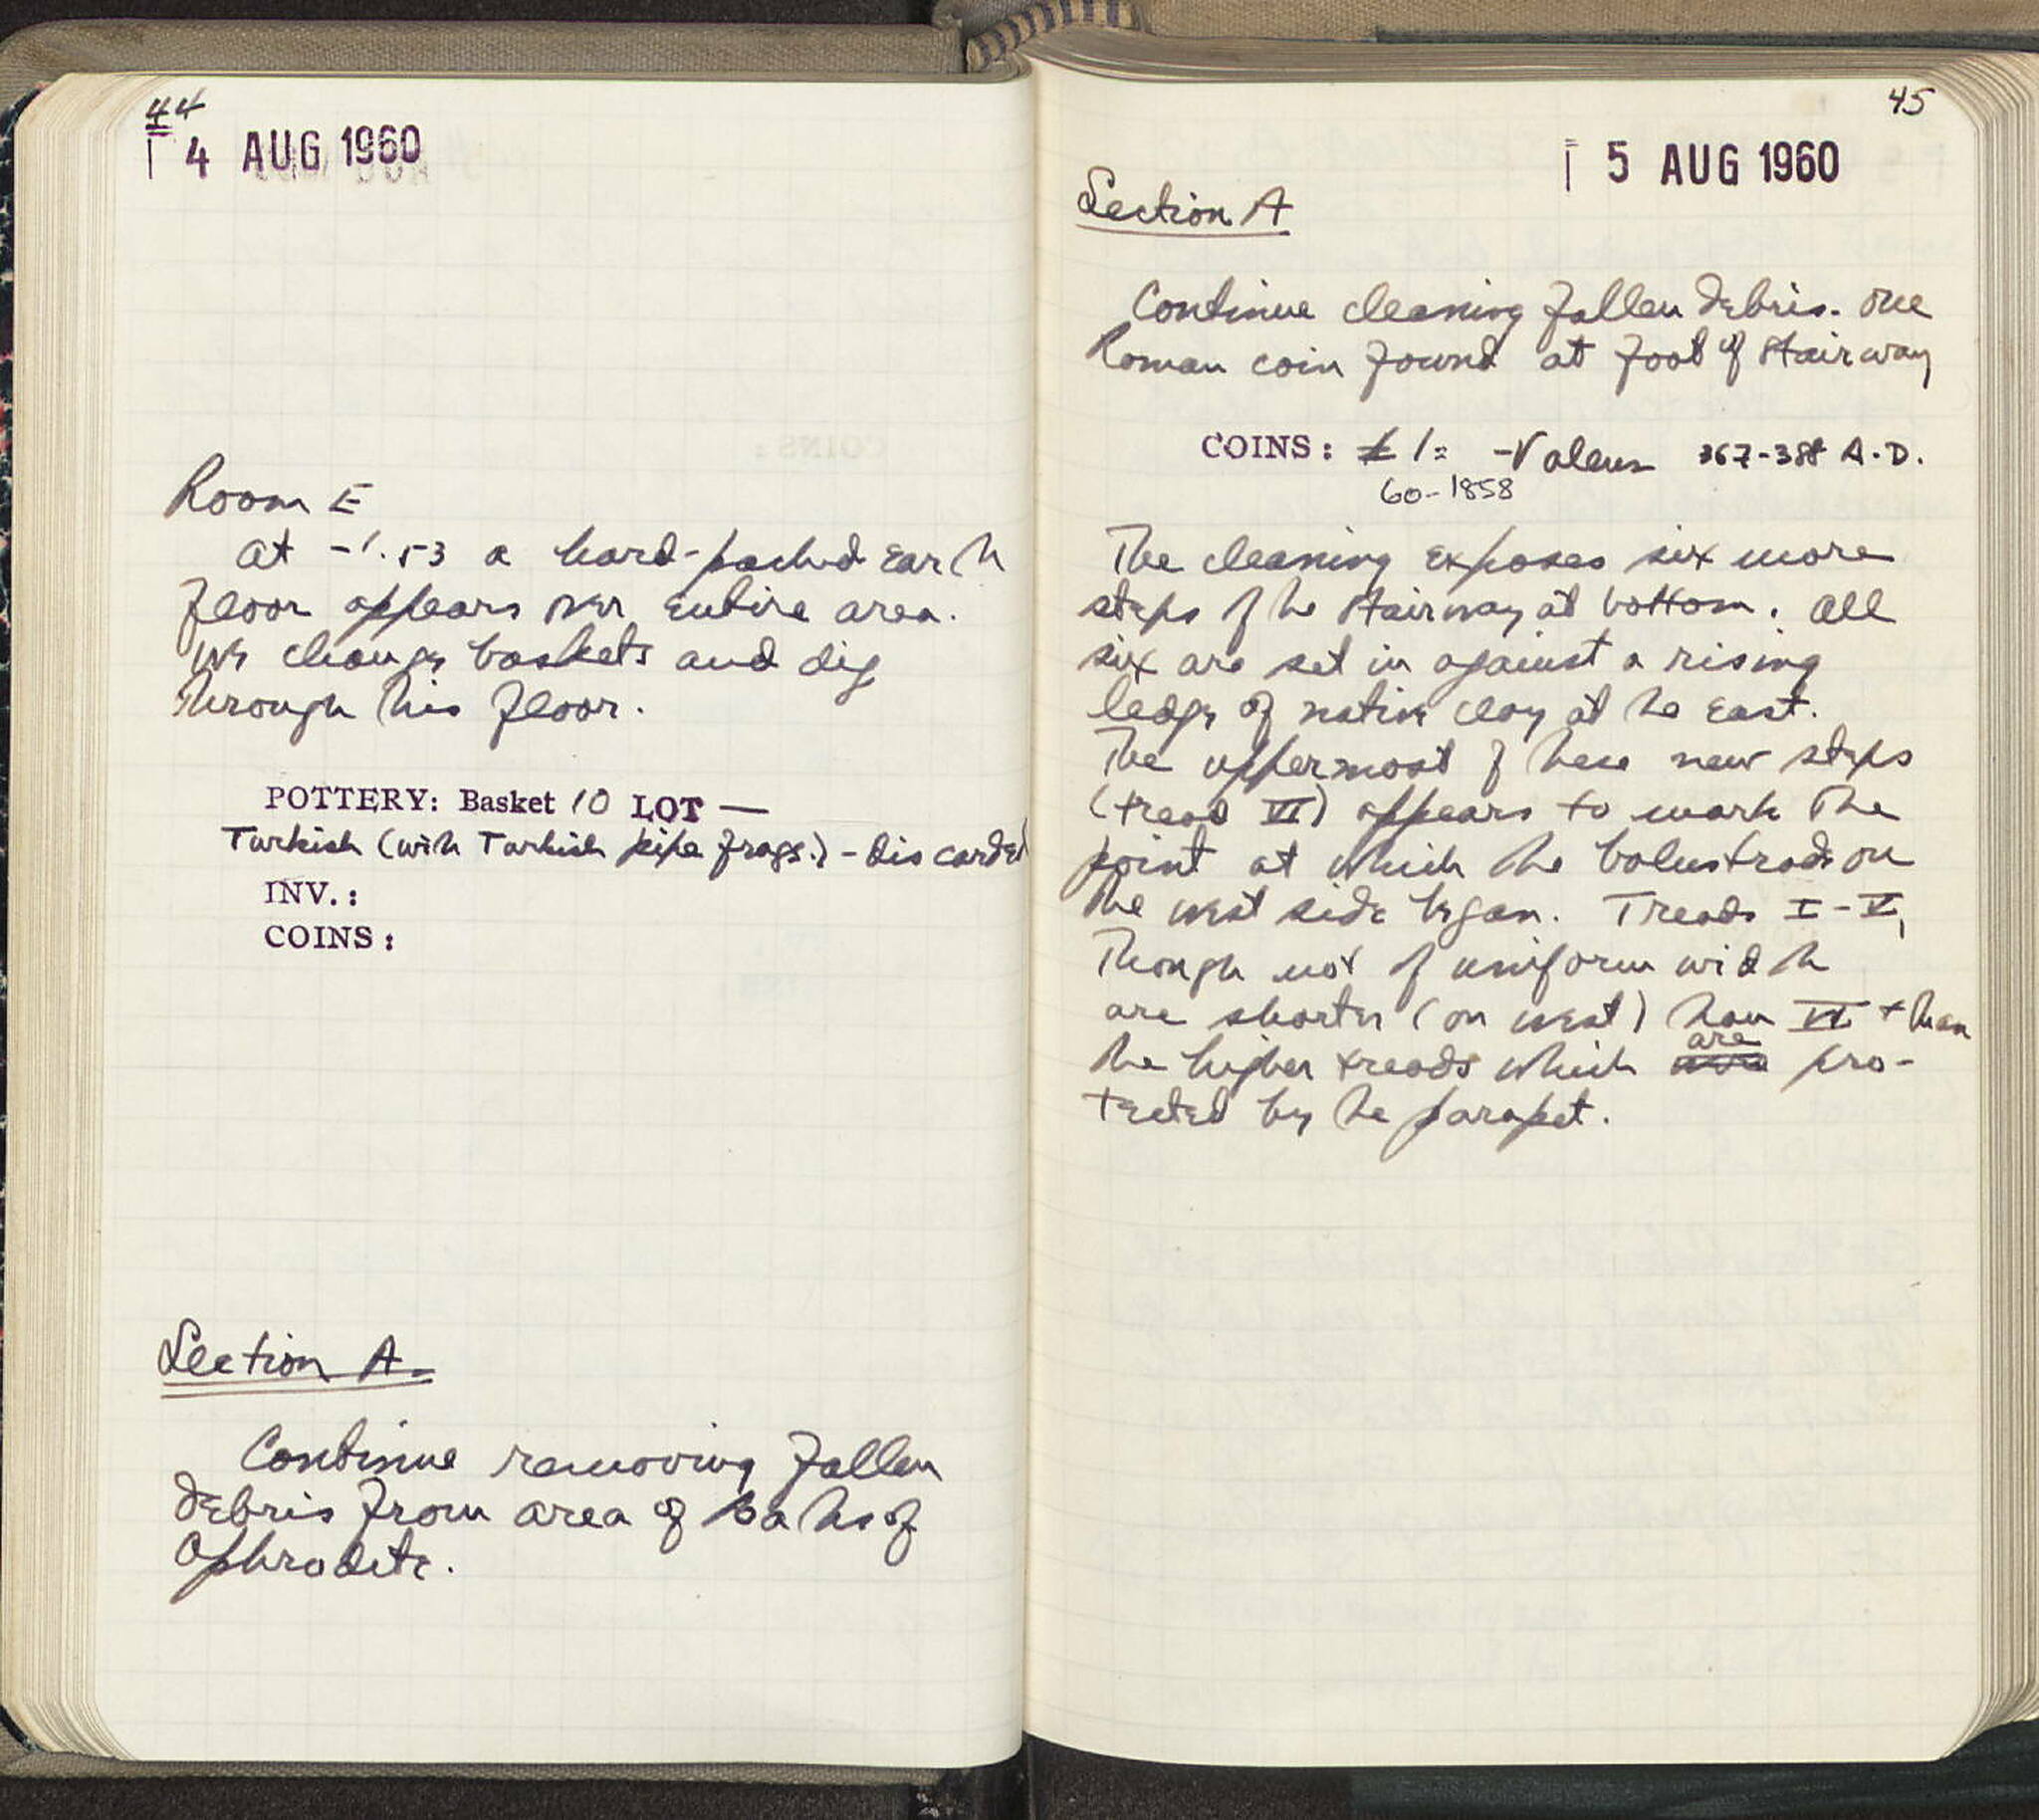 44
4 AUG 1960
Room E
at -1.53 a hard-packed earth
floor appears over entire area.
We change baskets and dig
through this floor.
POTTERY: Basket 10 LOT —
Turkish (with Turkish pipe frags.) - discarded
INV.:
COINS:
Section A.
Continue removing fallen
debris from area of Baths of
Aphrodite.
45
5 AUG 1960
Section A
Continue cleaning fallen debris. One
Roman coin found at foot of stairway
COINS: # 1= - Valens 367-38 A.D.
60-1858
The cleaning exposes six more
steps of the stairway at bottom. All
six are set in against a rising
ledge of native clay at the east.
The uppermost of these new steps
(tread VI) appears to mark the
point at which the balustrade on
the west side began. Treads I-V,
though not of uniform width
are shorter (on west) than VI + than
the higher treads which are pro-
tected by the parapet.